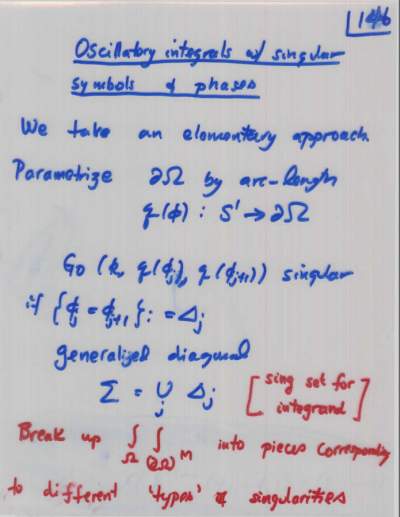 14/6
Oscillatory integrals w/ singular
symbols & phases
We take an elementary approach.
Parametrize ∂Ω by arc-length
q(ϕ) : S' → ∂Ω
G₀(k, q(ϕⱼ), q(ϕⱼ₊₁)) singular
if {ϕⱼ = ϕⱼ₊₁} : = Δⱼ
generalized diagonal
Σ = ∪ⱼ Δⱼ [sing set for
integrand]
Break up ∫_Ω ∫_(∂Ω)^M into pieces corresponding
to different 'types' of singularities